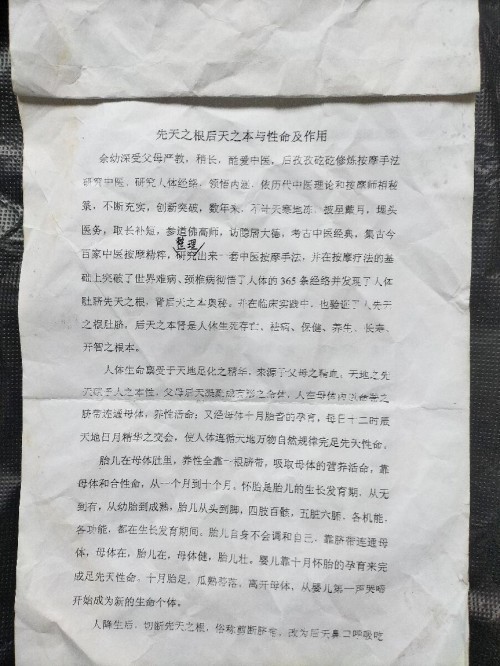 先天之根后天之本与性命及作用
余幼深受父母严教，稍长，酷爱中医，后孜孜矻矻修炼按摩手法
研究中医，研究人体经络，领悟内涵，依历代中医理论和按摩师祖秘
籙，不断充实，创新突破，数年来，不计天寒地冻，披星戴月，埋头
医务，取长补短，参道佛高师，访隐居大德，考古中医经典，集古今
整理
百家中医按摩精粹，研究出来一套中医按摩手法，并在按摩疗法的基
础上突破了世界难病、颈椎病彻悟了人体的365条经络并发现了人体
肚脐先天之根，肾后天之本奥秘。并在临床实践中，也验证了人先天
之根肚脐，后天之本肾是人体生死存亡、祛病、保健、养生、长寿、
开智之根本。
人体生命禀受于天地足化之精华，来源于父母之精血，天地之先
天
人之本性，父母后天
之命体，人在母体内以
脐带连通母体，养性活命；又经母体十月胎音的孕育，每日十二时辰
天地日月精华之交会，使人体遵循天地万物自然规律完足先天性命。
胎儿在母体肚里，养性全靠一根脐带，吸取母体的营养活命，靠
母体和合性命，从一个月到十个月。怀胎是胎儿的生长发育期，从无
到有，从幼胎到成熟，胎儿从头到脚，四肢百骸，五脏六腑、各机能、
各功能，都在生长发育期间。胎儿自身不会调和自已，靠脐带连通母
体，母体在，胎儿在，母体健，胎儿壮。婴儿靠十月怀胎的孕育来完
成足先天性命。十月胎足，瓜熟蒂落，离开母体，从婴儿第一声哭啼
开始成为新的生命个体。
人降生后，切断先天之根，俗称剪断脐带，改为后天鼻口呼吸吃